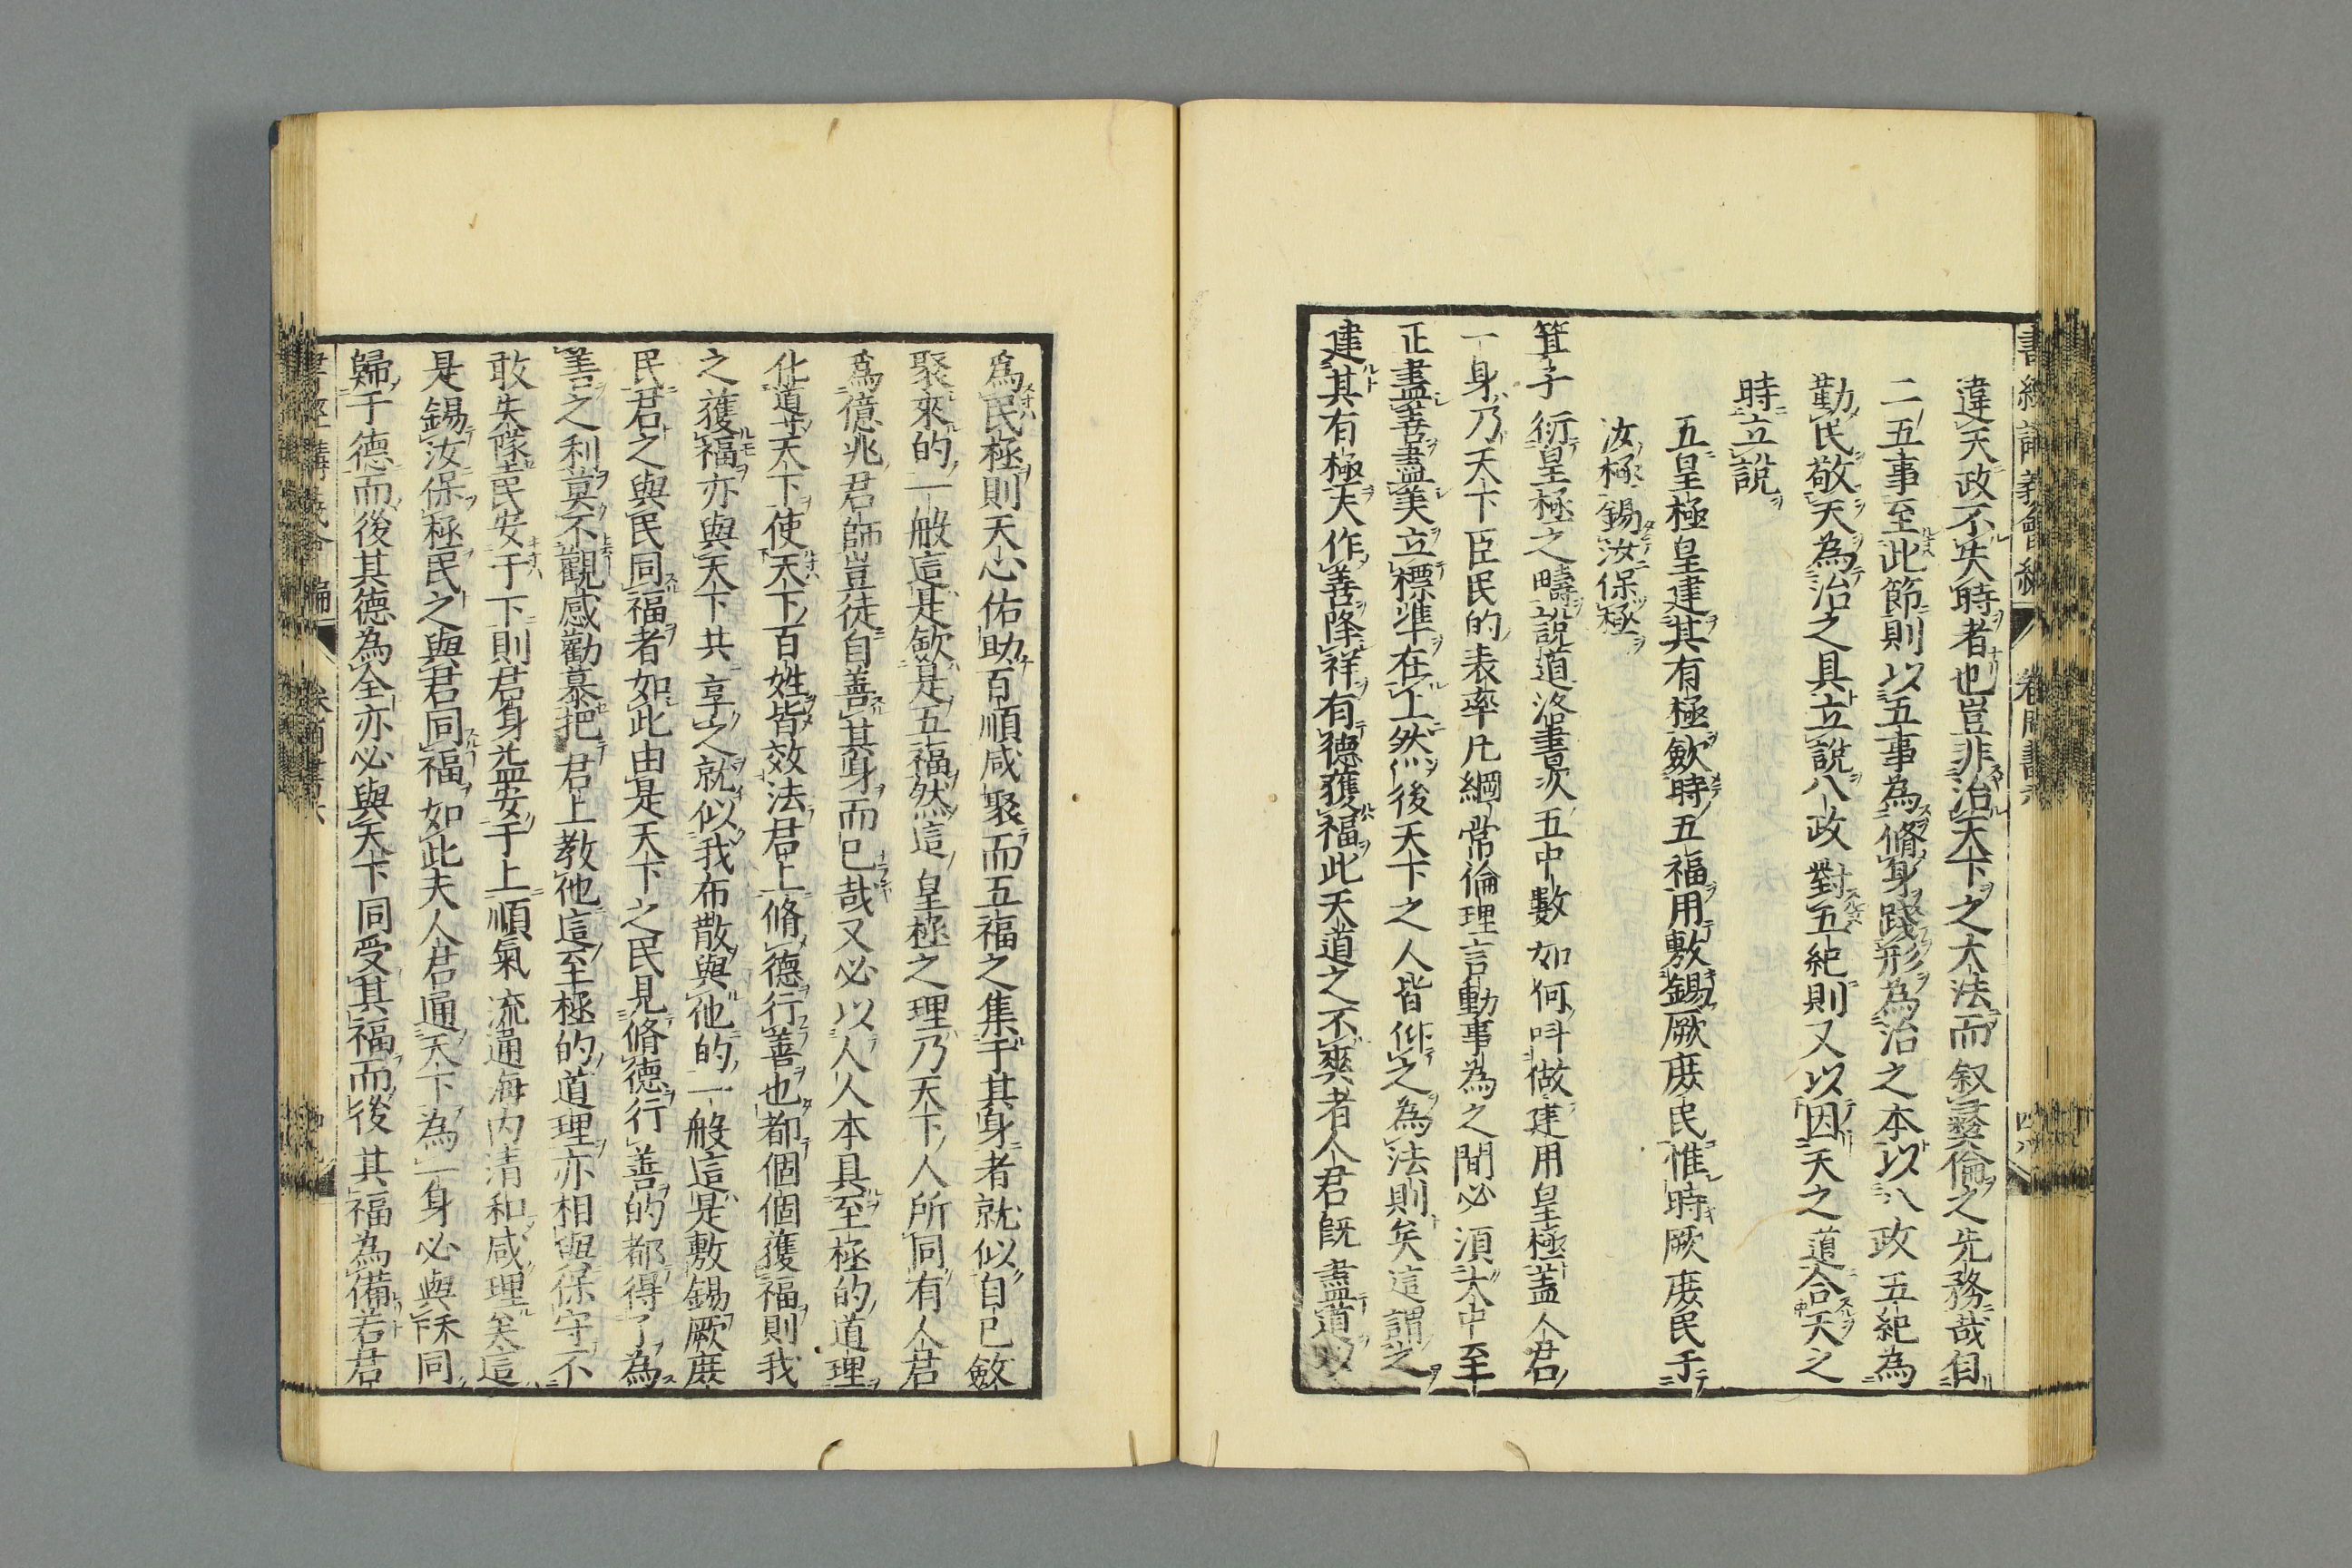 違天政不失時者也豈非治天下之大法而叙彛倫之先務哉自
二五事至此節則以五事為脩身踐形為治之本以八政五紀為
勤民敬天為治之具立說八政對五紀則又以因天之道合天之
時立說
五皇極皇建其有極歛時五福用敷錫厥庶民惟時厥庶民于
汝極錫汝保極
箕子衍皇極之疇說道洛書次五中數如何呌做建用皇極盖人君
一身乃天下臣民的表率凡綱常倫理言動事為之間必須大中至
正盡善盡美立標準在上然後天下之人皆仰之為法則矣這謂之
建其有極夫作善降祥有德獲福此天道之不爽者人君既盡道以
為民極則天心佑助百順咸聚而五福之集于其身者就似自已歛
聚來的一般這是歛是五福然這皇極之理乃天下人所同有人君
為億兆君師豈徒自善其身而已哉又必以人人本具至極的道理
化道于天下使天下百姓皆效法君上脩德行善也都個個獲福則我
之獲福亦與天下共享之就似我布散與他的一般這是敷錫厥庶
民君之與民同福者如此由是天下之民見脩德行善的都得了為
善之利莫不觀感勸慕把君上教他這至極的道理亦相與保守不
敢失墜民安于下則君身益安于上順氣流通海内清和咸理矣這
是錫汝保極民之與君同福如此夫人君通天下為一身必與天下同
歸于德而後其德為全亦必與天下同受其福而後其福為備若君